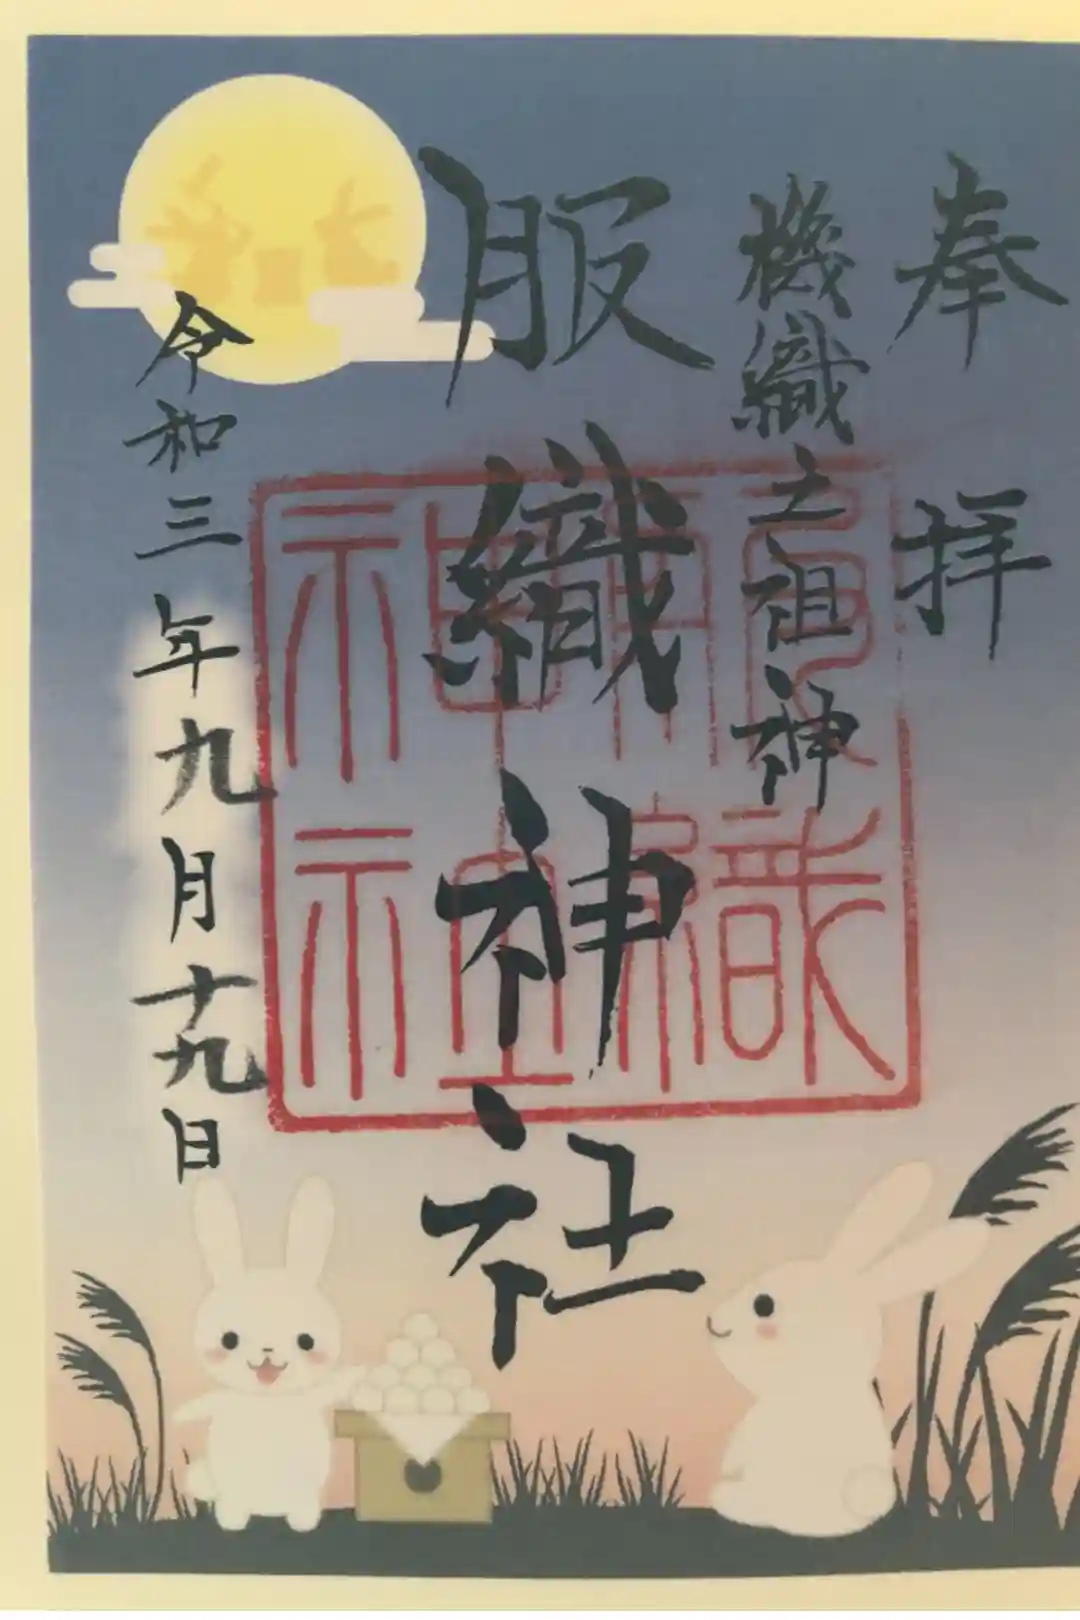 奉拝
機織之祖神
服織神社
令和三年九月十九日
服織神社